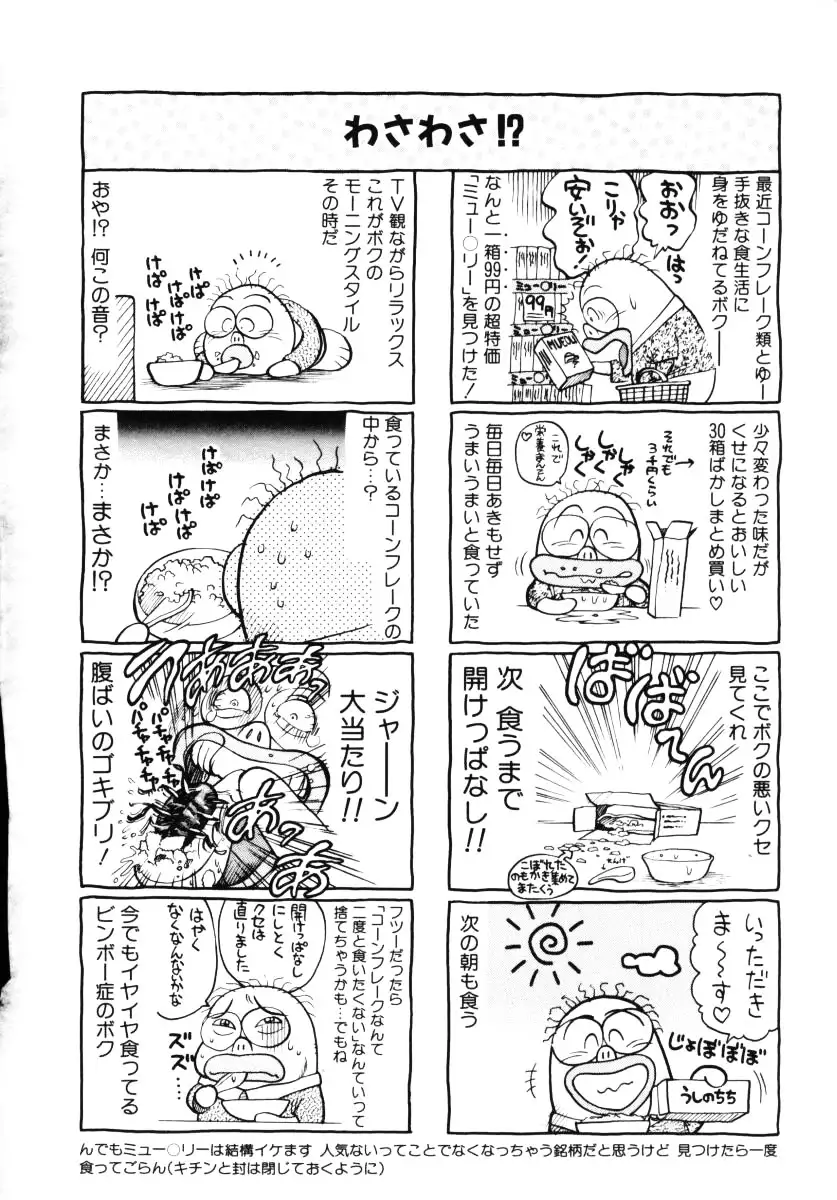 わさわさ!?
最近コーンフレーク類とゆー
手抜きな食生活に
身をゆだねてるボク──
おおっ
はっ
こりゃ
安いぞぉ!
ミュー○リー
99円
なんと一箱99円の超特価
「ミュー○リー」を見つけた!
少々変わった味だが
くせになるとおいしい
30箱ばかしまとめ買い♡
それでも
3千円くらい
→
しゃく
しゃく
しゃく
これで
栄養まんてん
♡
毎日毎日あきもせず
うまいうまいと食っていた
ここでボクの悪いクセ
見てくれ
ばばばーん
次 食うまで
開けっぱなし!!
こぼれた
のもかき集めて
またくう
いっただき
ま〜〜す♡
じょぼぼぼぼ
うしのちち
次の朝も食う
TV観ながらリラックス
これがボクの
モーニングスタイル
その時だ
けぱ
けぱけぱ
けぱけぱ
おや!? 何この音?
食っているコーンフレークの
中から…?
けぱけぱ
けぱけぱ
けぱ
まさか…まさか!?
ジャーーン
大当たり!!
うあぁあぁあぁっ
パチャ
パチャパチャ
パチャパチャ
あっあぁ
腹ばいのゴキブリ!
フツーだったら
「コーンフレークなんて
二度と食いたくない」なんていって
捨てちゃうかも…でもね
開けっぱなし
にしとく
クセは
直りました
はやく
なくなんないかな
ズズ
ズ……
今でもイヤイヤ食ってる
ビンボー症のボク
んでもミュー○リーは結構イケます 人気ないってことでなくなっちゃう銘柄だと思うけど 見つけたら一度
食ってごらん(キチンと封は閉じておくように)